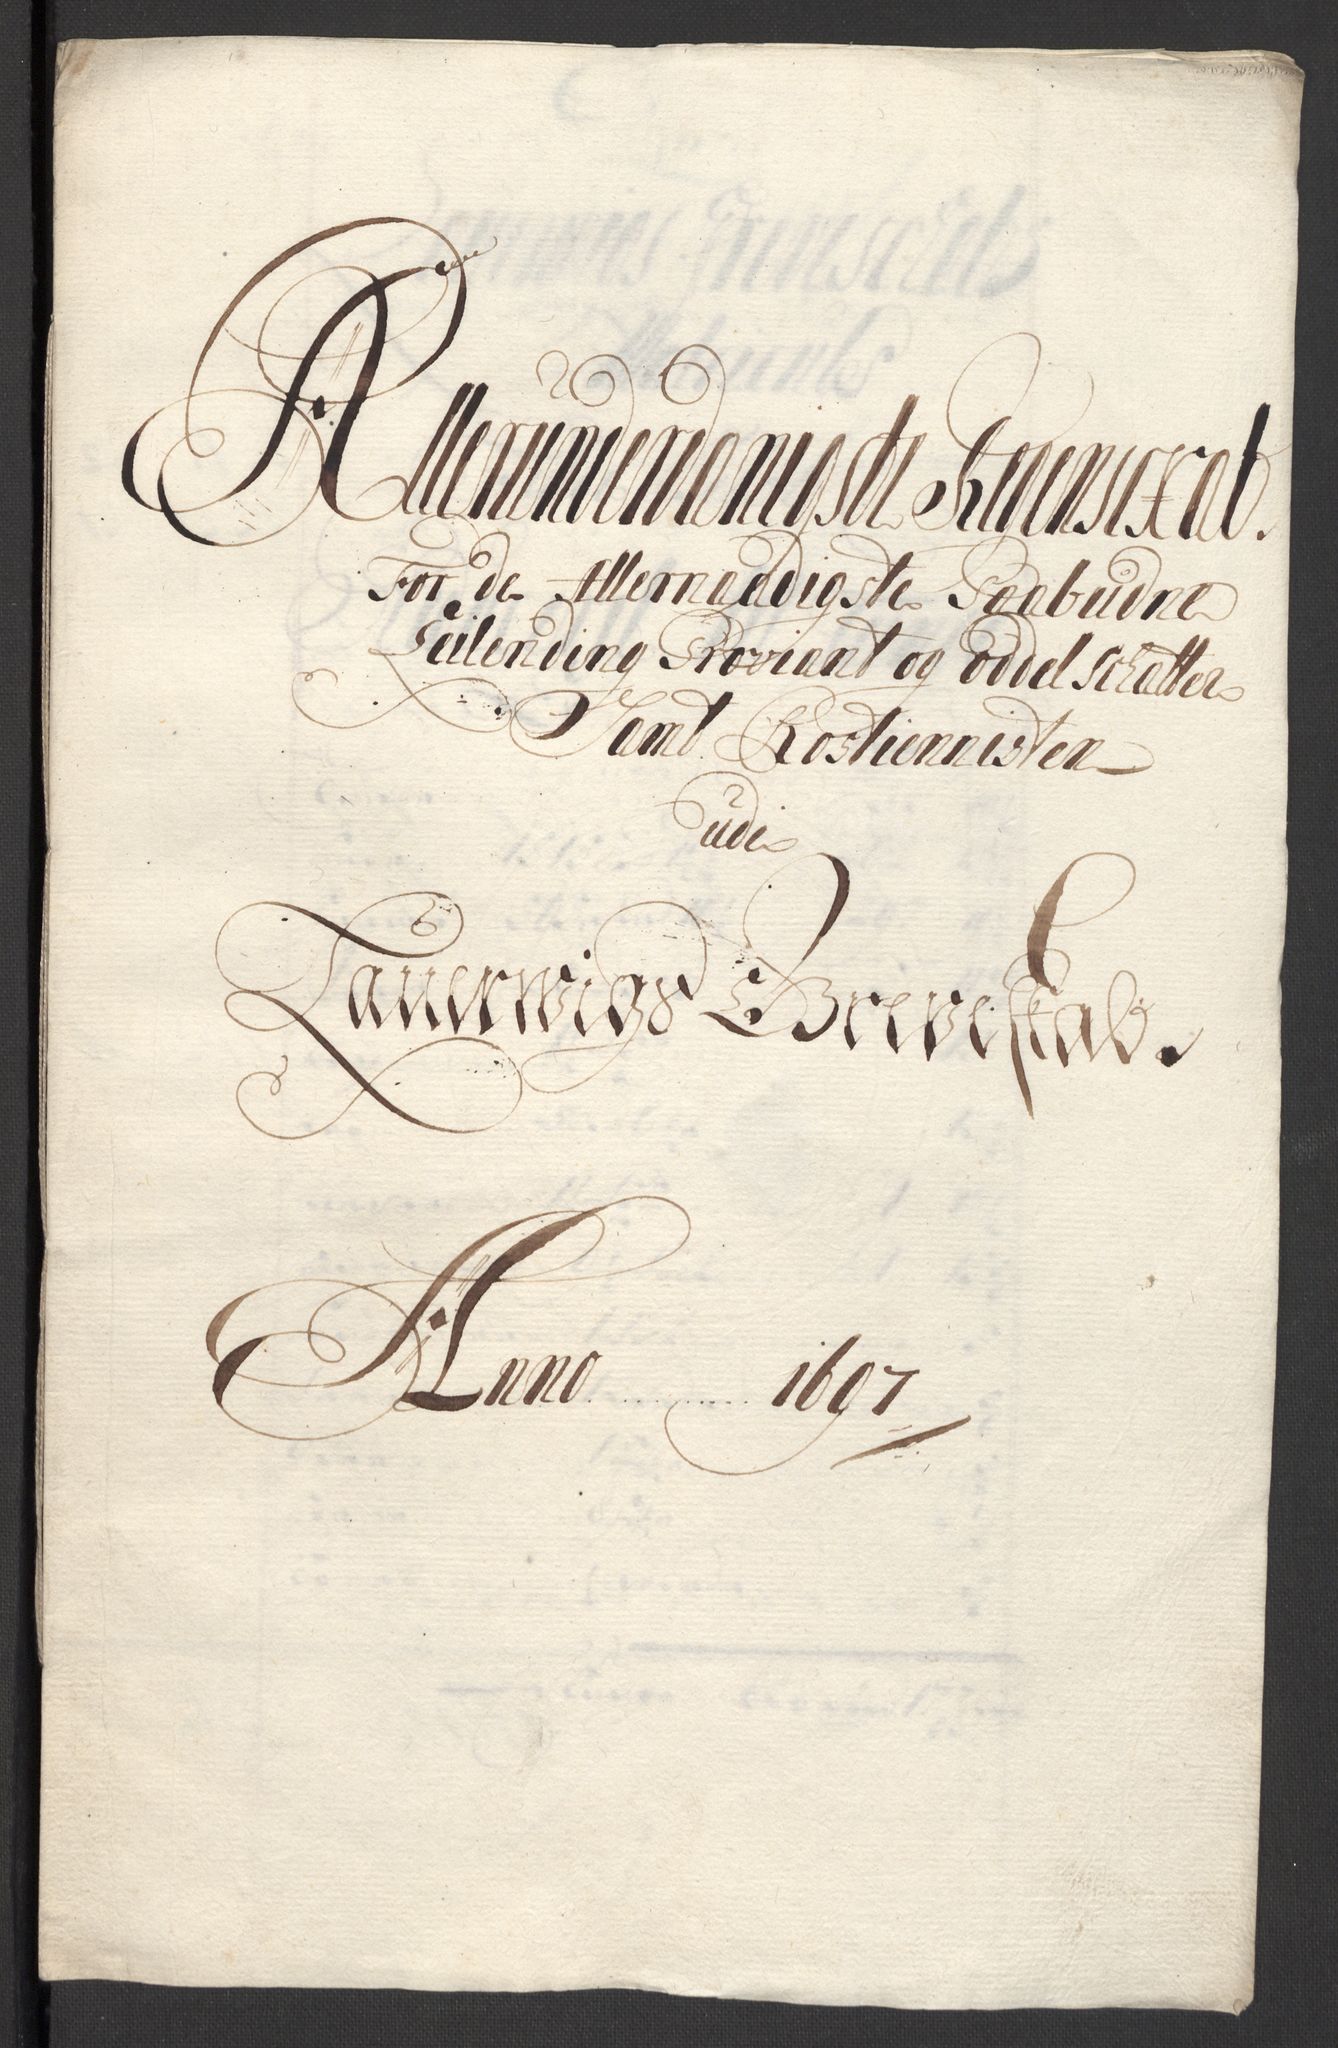 Allerunderdanigste Regenscab.
For de Allernaadigste Paabudne
Leilending Proviant og oddel schatter
Samt Rostiennisten
udi
Lauerwigs Grefveskab.
Anno 1697